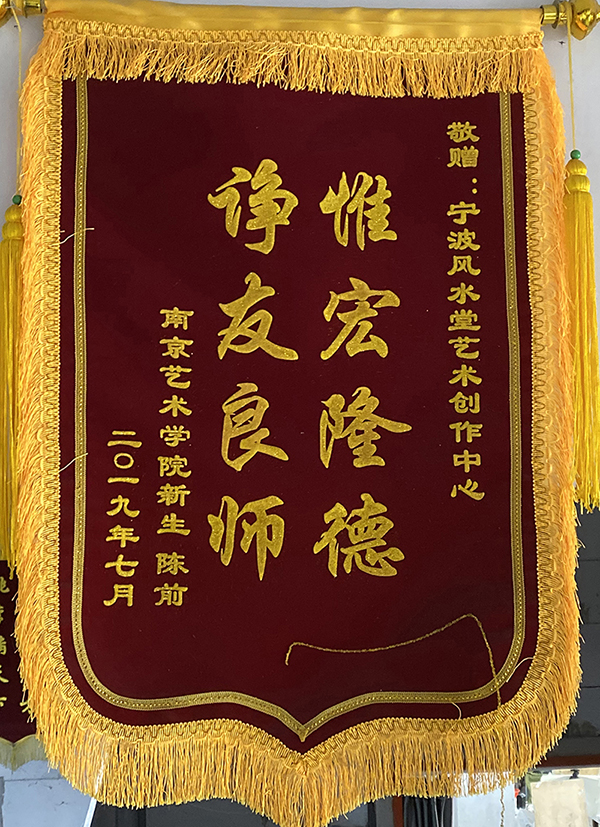 敬赠：宁波风水堂艺术创作中心
惟宏隆德
诤友良师
南京艺术学院新生 陈前
二〇一九年七月